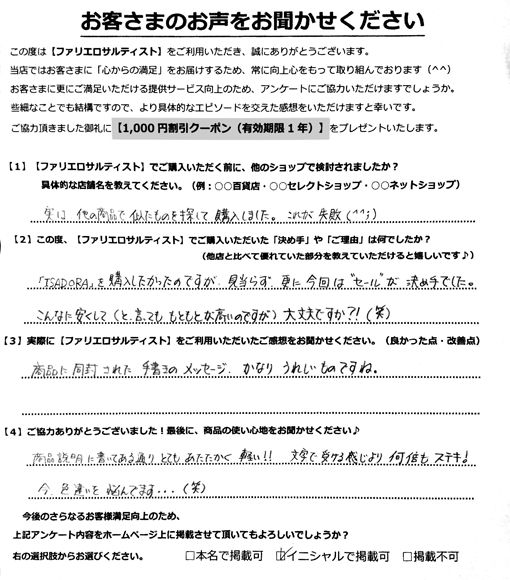 お客さまのお声をお聞かせください
この度は【ファリエロサルティスト】をご利用いただき、誠にありがとうございます。
当店ではお客さまに「心からの満足」をお届けするため、常に向上心をもって取り組んでおります(^^)
お客さまに更にご満足いただける提供サービス向上のため、アンケートにご協力いただけますでしょうか。
些細なことでも結構ですので、より具体的なエピソードを交えた感想をいただけますと幸いです。
ご協力頂きました御礼に【1,000円割引クーポン(有効期限1年)】をプレゼントいたします。
【1】【ファリエロサルティスト】でご購入いただく前に、他のショップで検討されましたか?
具体的な店舗名を教えてください。(例:○○百貨店・○○セレクトショップ・○○ネットショップ)
実は 他の商品で 似たものを探して購入しました。これが失敗(^^;)
【2】この度、【ファリエロサルティスト】でご購入いただいた「決め手」や「ご理由」は何でしたか?
(他店と比べて優れていた部分を教えていただけると嬉しいです♪)
「ISADORA」を購入したかったのですが、見当らず 更に今回は"セール"が決め手でした。
こんなに安くして(と、言っても もともとが高いのですが)大丈夫ですか?!(笑)
【3】実際に【ファリエロサルティスト】をご利用いただいたご感想をお聞かせください。(良かった点・改善点)
商品に同封された 手書きの メッセージ、かなり うれしいものですね。
【4】ご協力ありがとうございました!最後に、商品の使い心地をお聞かせください♪
商品説明に書いてある通り とても あたたかく 軽い!! 文字で受ける感じより 何倍も ステキ!
今、色違いを悩んでます...(笑)
今後のさらなるお客様満足向上のため、
上記アンケート内容をホームページ上に掲載させて頂いてもよろしいでしょうか?
右の選択肢からお選びください。 □本名で掲載可 ☑イニシャルで掲載可 □掲載不可